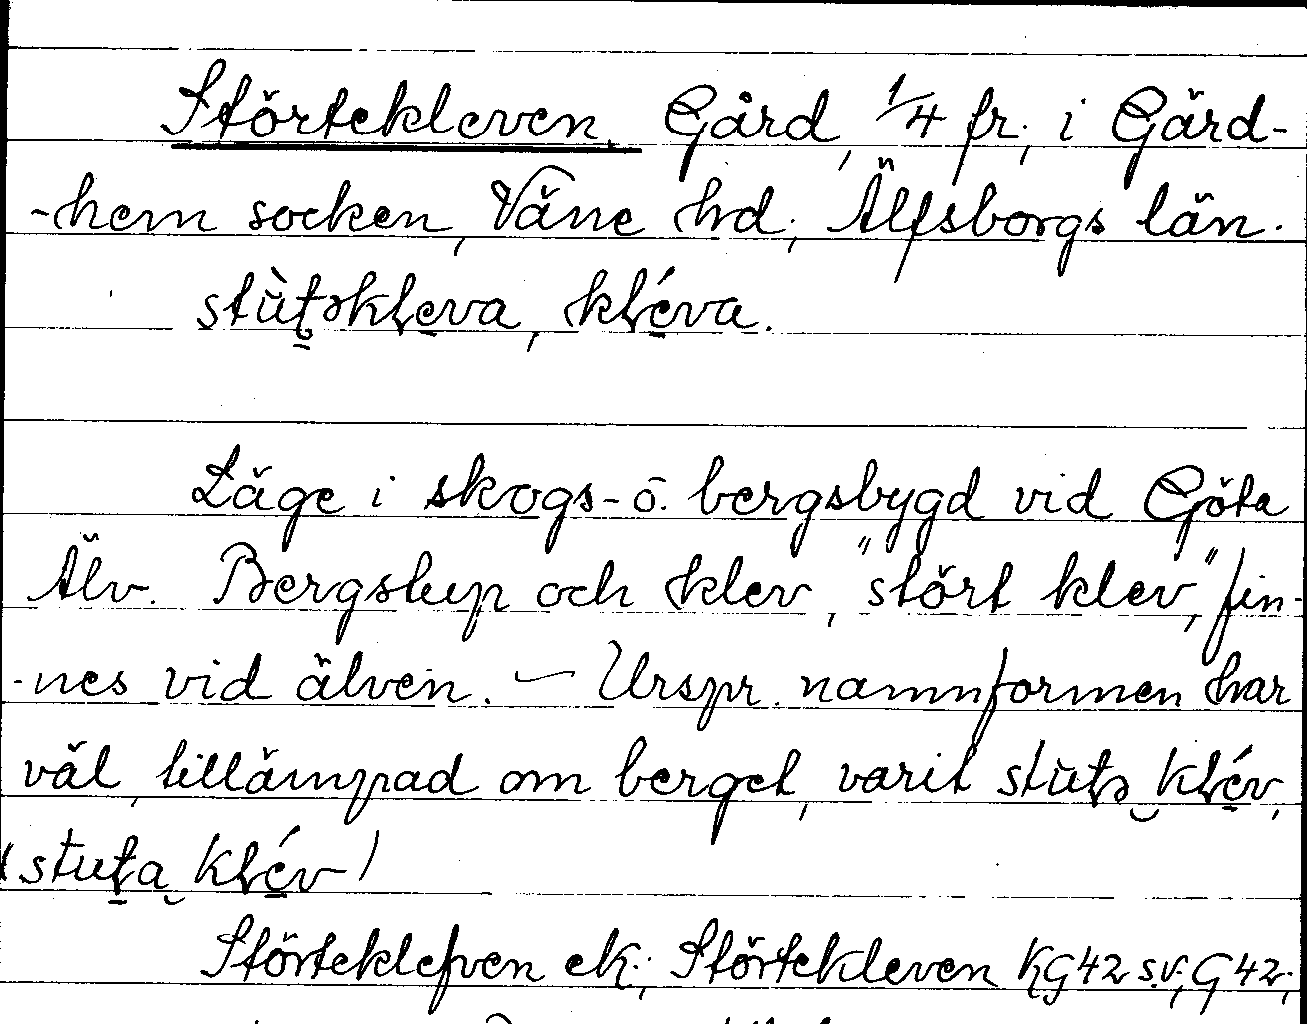 Störtekleven. Gård, 1/4 fr., i Gärd-
-hem socken, Väne hd; Älfsborgs län.
stùt̠əkḷe̠va, kḷé̠va.
Läge i skogs- o. bergsbygd vid Göta
Älv. Bergstup och klev, "stört klev," fin-
-nes vid älven. — Urspr. namnformen har
väl, tillämpad om berget, varit stut̠ə‿kḷé̠v,
(stut̠a‿kḷé̠v)
Störteklefven ek.; Störtekleven KG42 s.v; G42;